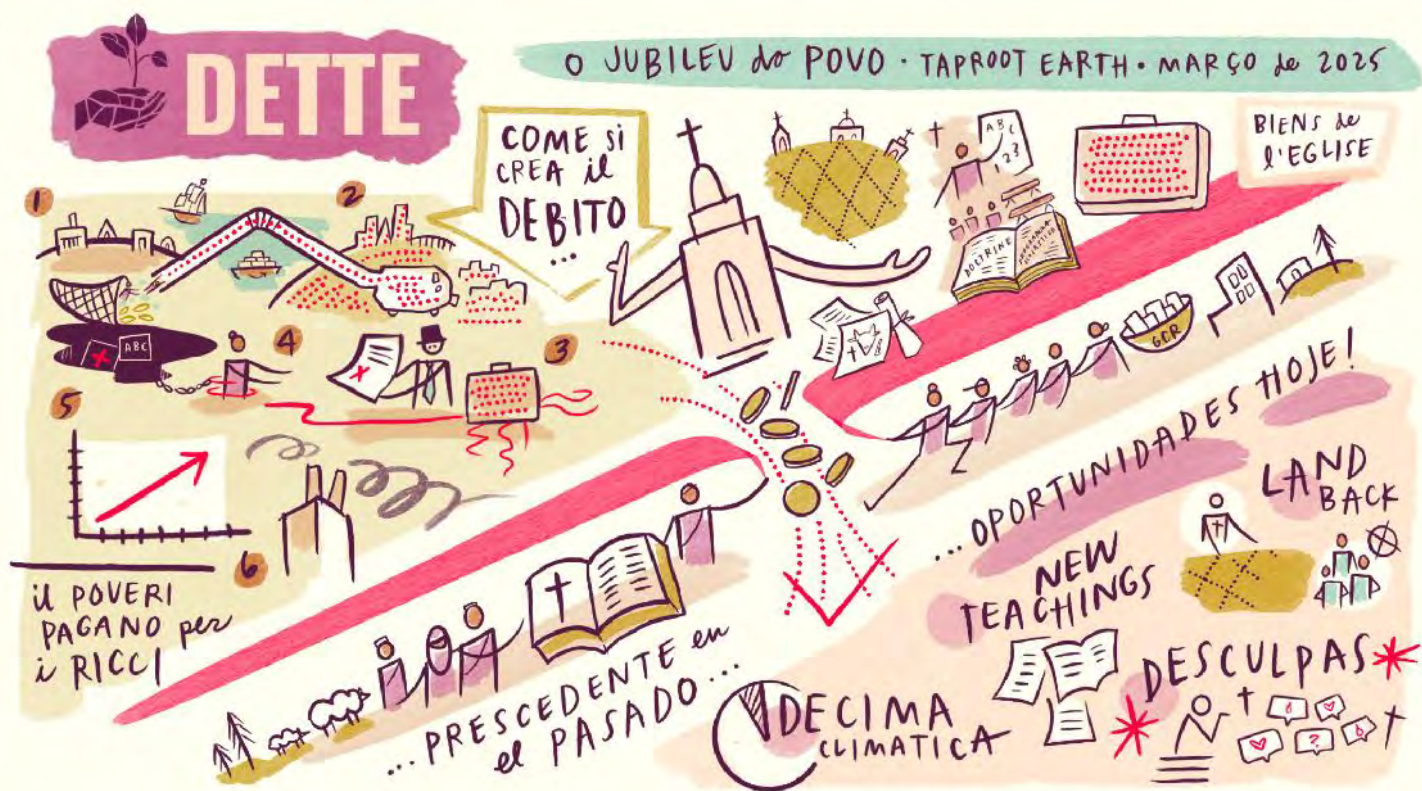 DETTE
O JUBILEU do POVO · TAPROOT EARTH · MARÇO de 2025
COME SI
CREA il
DEBITO
...
BIENS de
l'EGLISE
ABC
123
DOCTRINE
1
2
3
4
ABC
5
6
il POVERI
PAGANO per
i RICCI
GCR
...PRESCEDENTE en
el PASADO...
...OPORTUNIDADES HOJE!
LAND
BACK
NEW
TEACHINGS
DESCULPAS
?
DECIMA
CLIMATICA